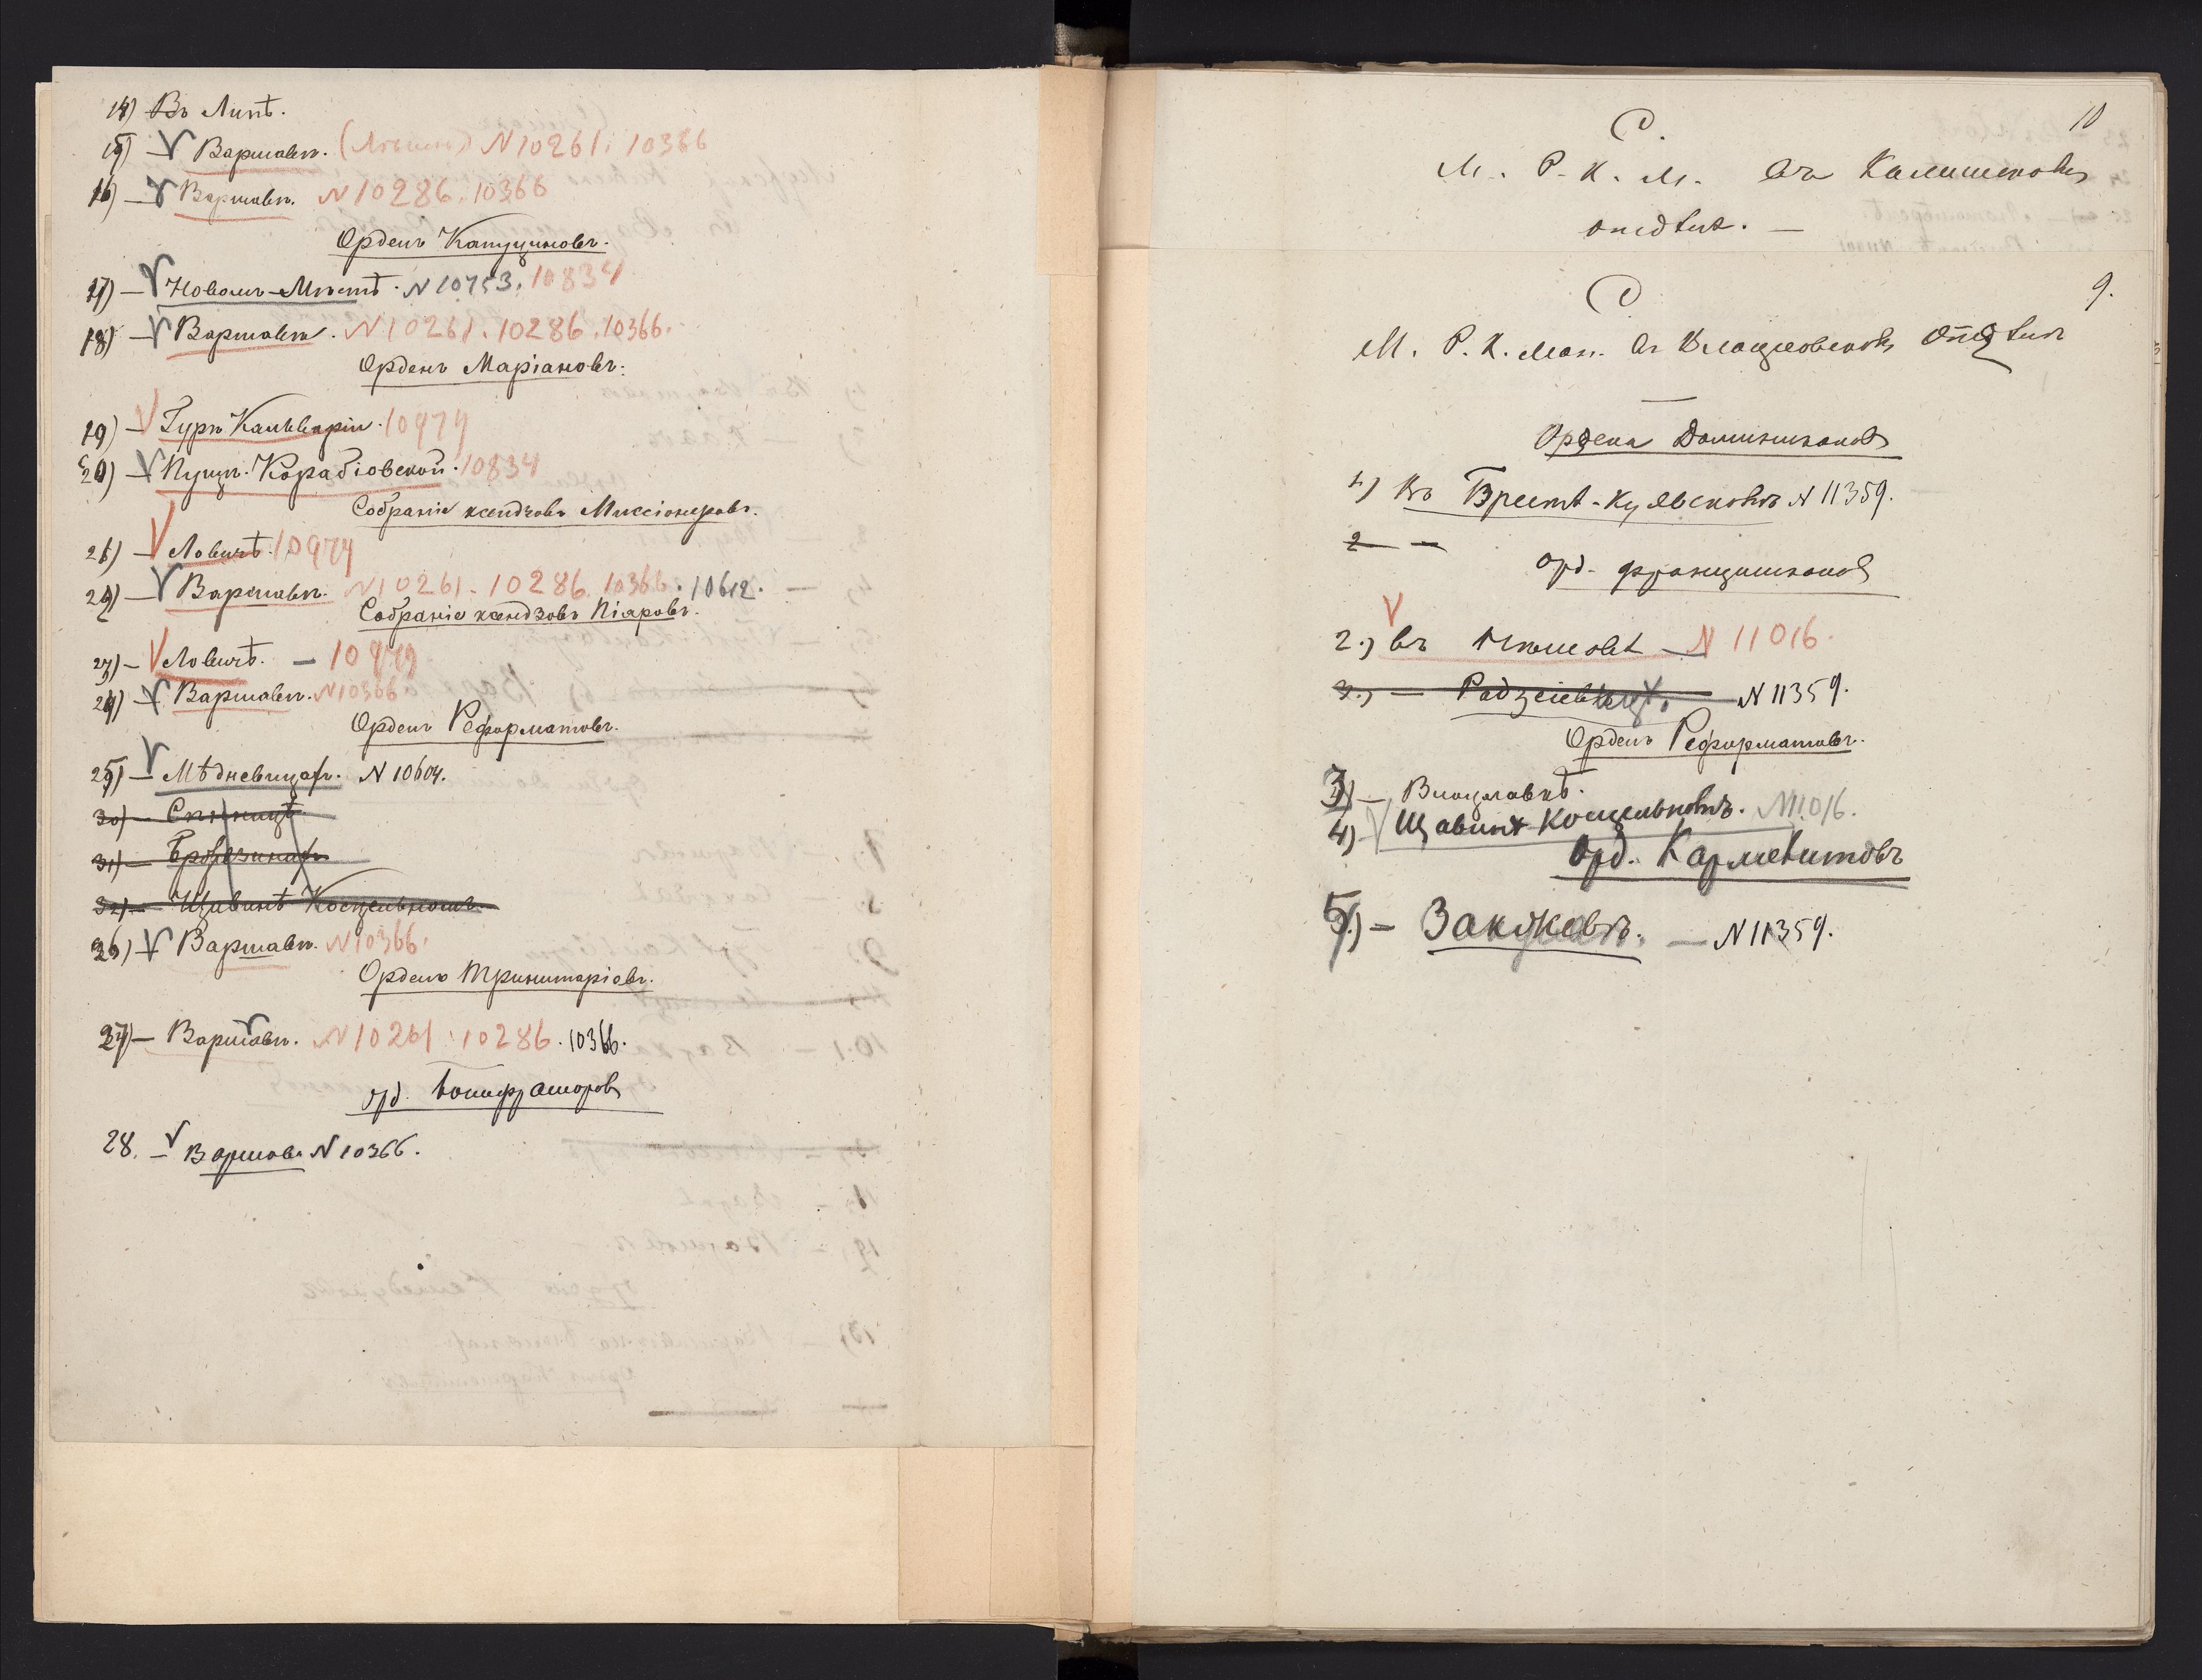 14) Въ Липѣ.
15) — V Варшавѣ. N 10261. 10366
16) — V Варшавѣ. N 10286. 10366
Орденъ Капуциновъ.
17) — V Новомъ-Мѣстѣ. N 10753. 10834
18) — V Варшавѣ. N 10261. 10286. 10366.
Орденъ Маріановъ.
19) — V Гурѣ Кальваріи. 10979
20) — V Пущѣ. Корабіовской. 10834
Собраніе ксендзовъ Миссіонеровъ.
21) — V Ловичѣ. 10979
22) — V Варшавѣ. N 10261. 10286. 10366. 10612.
Собраніе ксендзовъ Піаровъ.
23) — V Ловичѣ. — 10979
24) — V Варшавѣ. N 10366
Орденъ Реформатовъ.
25) — V Мѣдневицахъ. N 10604.
30) —
31) —
32) — Щавинѣ Косцельномъ.
26) — V Варшавѣ. N 10366.
Орденъ Тринитаріовъ.
27) — Варшавѣ. N 10261. 10286. 10366.
орд. Бонифраторовъ
28. — V Варшавѣ N 10366.
10
С.
М. Р. К. М. въ Калишской
отдѣлѣ. —
9.
С
М. Р. К. Мон. въ Влоцлавской отдѣлѣ
Ордена Доминиканов
1) Въ Брестѣ-Куявскомъ N 11359.
2 —
орд. францишканов
2.) V въ — N 11016.
3.) — Радзіевѣ — N 11359.
Орденъ Реформатовъ.
3) — Влоцлавкѣ.
4) V Щавинѣ Косцельномъ. N 11016.
Орд. Кармелитовъ
5.) — Закржевѣ. — N 11359.